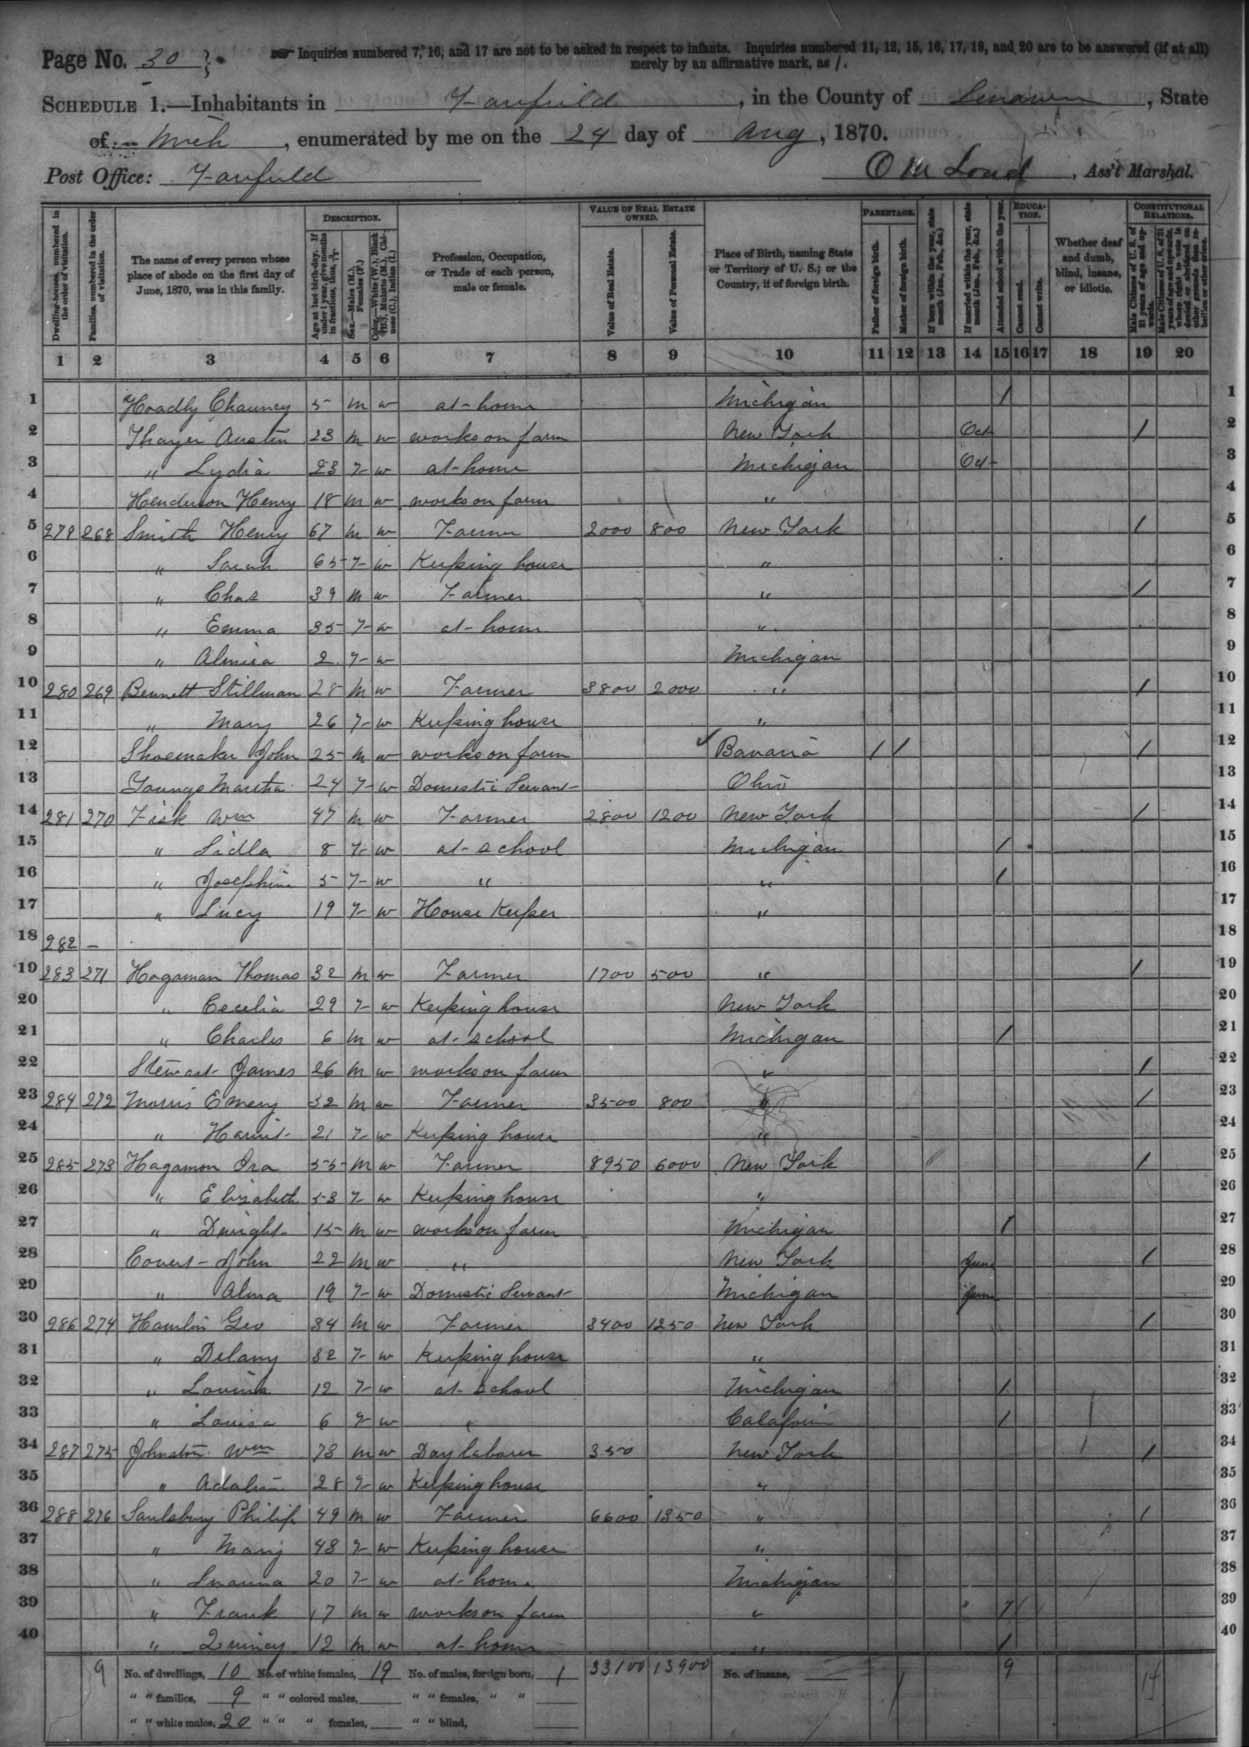 Page No. 30
Inquiries numbered 7, 16, and 17 are not to be asked in respect to infants. Inquiries numbered 11, 12, 15, 16, 17, 19, and 20 are to be answered (if at all)
merely by an affirmative mark, as /.
SCHEDULE 1.—Inhabitants in Fairfield, in the County of Lenawee, State
of Mich, enumerated by me on the 24 day of Aug, 1870.
Post Office: Fairfield
O M Loud, Ass't Marshal.
Dwelling-houses, numbered in the order of visitation.
Families, numbered in the order of visitation.
The name of every person whose place of abode on the first day of June, 1870, was in this family.
DESCRIPTION.
Age at last birth-day. If under 1 year, give months in fractions, thus, 3/12.
Sex.—Males (M.), Females (F.)
Color.—White (W.), Black (B.), Mulatto (M.), Chinese (C.), Indian (I.)
Profession, Occupation, or Trade of each person, male or female.
VALUE OF REAL ESTATE OWNED.
Value of Real Estate.
Value of Personal Estate.
Place of Birth, naming State or Territory of U. S.; or the Country, if of foreign birth.
PARENTAGE.
Father of foreign birth.
Mother of foreign birth.
If born within the year, state month (Jan., Feb., &c.)
If married within the year, state month (Jan., Feb., &c.)
Attended school within the year.
EDUCATION.
Cannot read.
Cannot write.
Whether deaf and dumb, blind, insane, or idiotic.
CONSTITUTIONAL RELATIONS.
Male Citizens of U. S. of 21 years of age and upwards.
Male Citizens of U. S. of 21 years of age and upwards, whose right to vote is denied or abridged on other grounds than rebellion or other crime.
1 2 3 4 5 6 7 8 9 10 11 12 13 14 15 16 17 18 19 20
1 Hoadly Chauncy 5 M W at home Michigan / 1
2 Thayer Austin 23 M W works on farm New York Oct / 2
3 " Lydia 23 F W at home Michigan Oct 3
4 Henderson Henry 18 M W works on farm " 4
5 279 268 Smith Henry 67 M W Farmer 2000 800 New York / 5
6 " Sarah 65 F W Keeping house " 6
7 " Chas 39 M W Farmer " / 7
8 " Emma 35 F W at home " 8
9 " Almira 2 F W Michigan 9
10 280 269 Bennett Stillman 28 M W Farmer 3800 2000 " / 10
11 " Mary 26 F W Keeping house " 11
12 Shoemaker John 25 M W works on farm Bavaria / / / 12
13 Youngs Martha 24 F W Domestic Servant Ohio 13
14 281 270 Fisk Wm 47 M W Farmer 2800 1200 New York / 14
15 " Lidla 8 F W at school Michigan / 15
16 " Josephine 5 F W " " / 16
17 " Lucy 19 F W House Keeper " 17
18 282 – 18
19 283 271 Hagaman Thomas 32 M W Farmer 1700 500 " / 19
20 " Cecelia 29 F W Keeping house New York 20
21 " Charles 6 M W at school Michigan / 21
22 Stewart James 26 M W works on farm " / 22
23 284 272 Morris Emery 32 M W Farmer 3500 800 " / 23
24 " Harriet 21 F W Keeping house " 24
25 285 273 Hagamon Ira 55 M W Farmer 8950 6000 New York / 25
26 " Elizabeth 53 F W Keeping house " 26
27 " Dwight 15 M W works on farm Michigan / 27
28 Covert John 22 M W " New York June / 28
29 " Alma 19 F W Domestic Servant Michigan June 29
30 286 274 Hamlin Geo 34 M W Farmer 3400 1250 New York / 30
31 " Delany 32 F W Keeping house " 31
32 " Lovina 12 F W at school Michigan / 32
33 " Louisa 6 F W " / 33
34 287 275 Johnston Wm 73 M W Day laborer 350 New York / 34
35 " 28 F W Keeping house " 35
36 288 276 Saulsbury Philip 49 M W Farmer 6600 1350 " / 36
37 " Mary 48 F W Keeping house " 37
38 " 20 F W at home Michigan 38
39 " Frank 17 M W works on farm " / 39
40 " Quincy 12 M W at home " / 40
9 No. of dwellings, 10 No. of white females, 19 No. of males, foreign born, 1 33100 13900 No. of insane, 1 9 14
" " families, 9 " " colored males, " " females, " "
" " white males, 20 " " " females, " " blind,